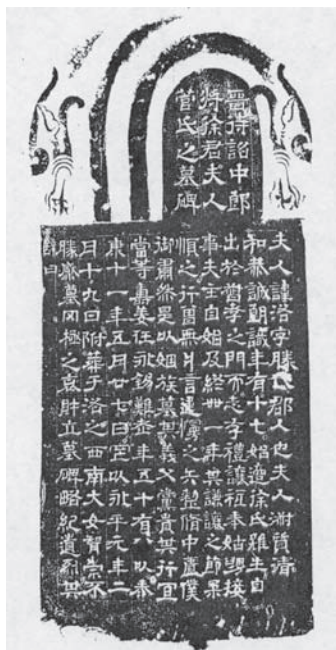 晉待詔中郎
將徐君夫人
菅氏之墓碑
夫人諱洛字勝代郡人也夫人淑質清
和恭誠朗識年有十七始適徐氏雖生自
出於督孝之門而志存禮讓祗奉姑舅接
事夫主自始及終卅一年其謙讓之節柔
順之行曾無片言違慢之矢整脩中匱僕
御肅然是以姻族慕其義父黨貴其行宜
當等壽姜任永錫難老年五十有八以泰
康十一年五月廿七日以永平元年二
月十九日附葬于洛之西南大女智崇不
勝感慕罔極之哀財立墓碑略紀遺烈其
辭曰